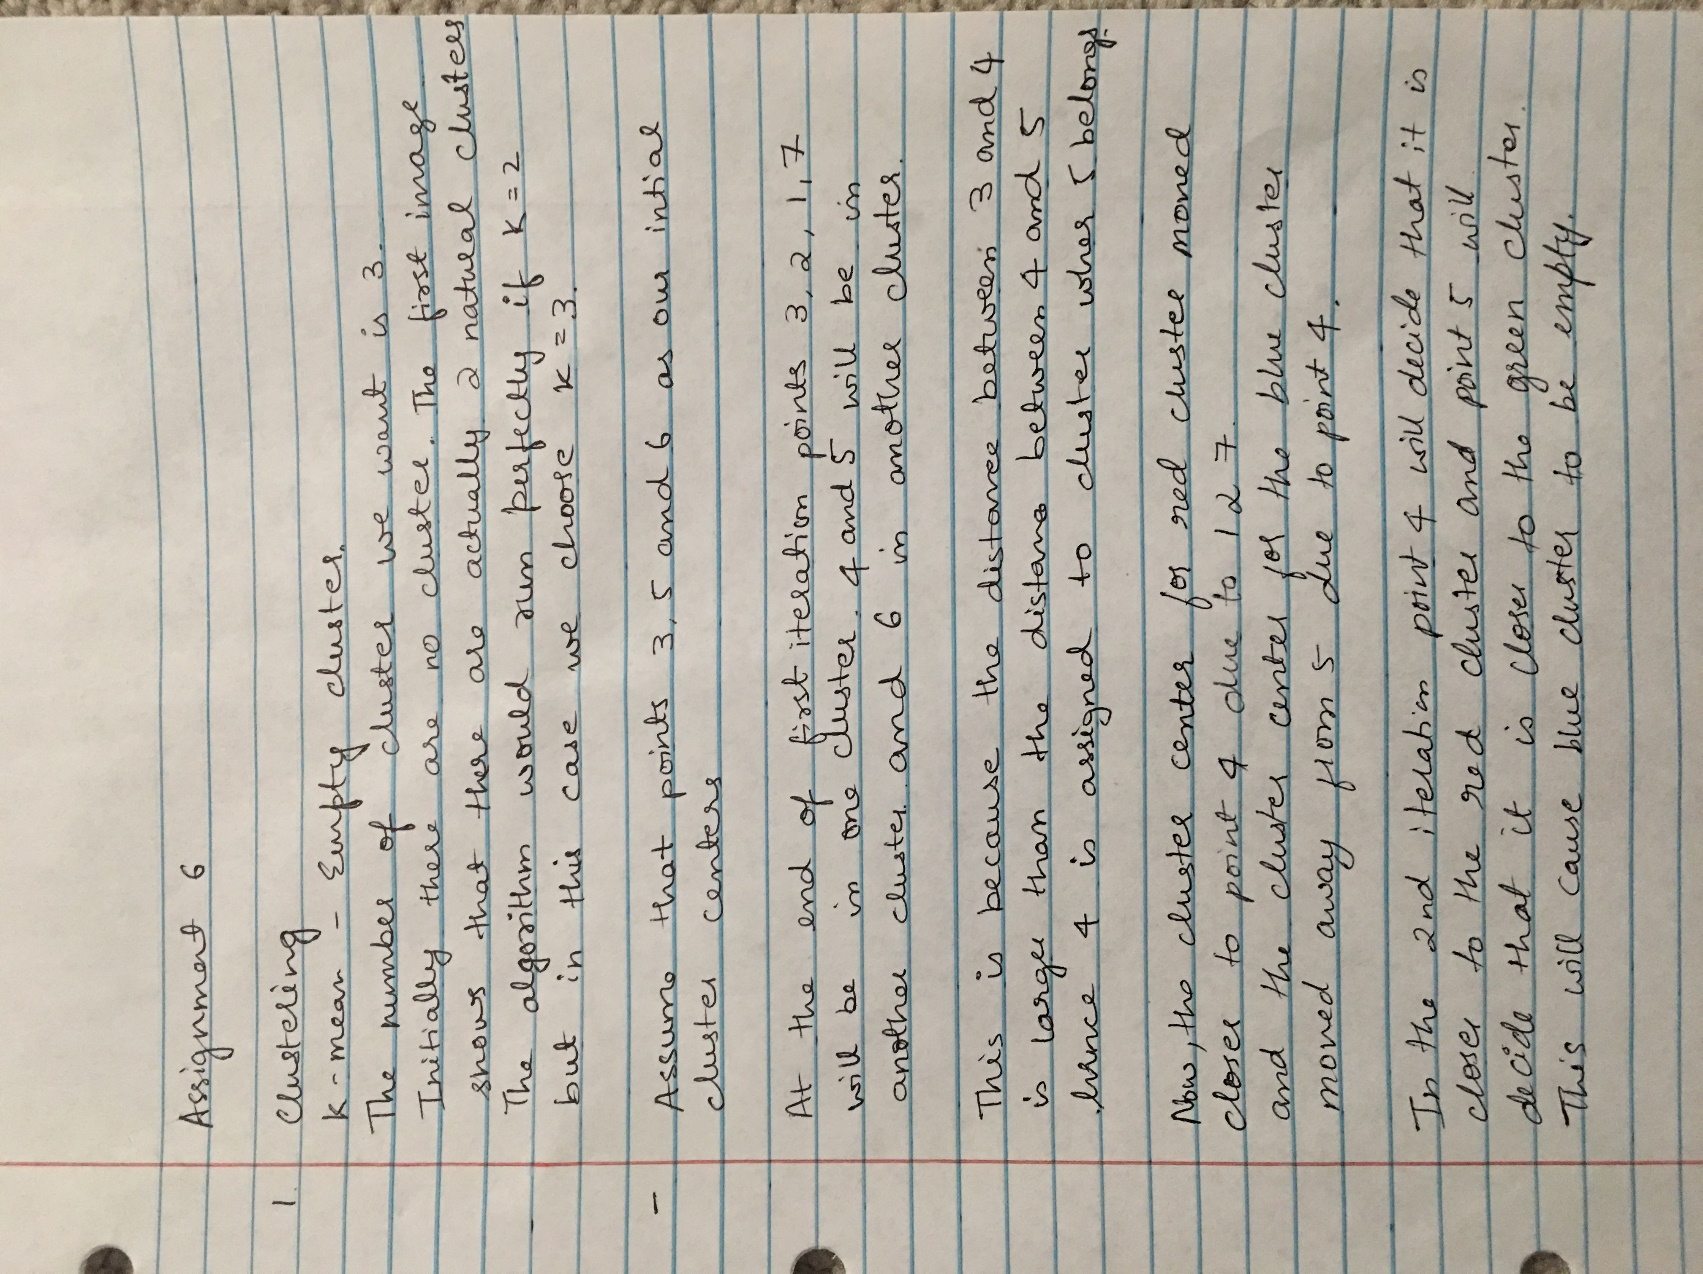 Assignment 6
1. Clustering
K-mean - Empty cluster.
The number of cluster we want is 3.
Initially there are no cluster. The first image
shows that there are actually 2 natural clusters
The algorithm would run perfectly if K=2
but in this case we choose K=3.
- Assume that points 3, 5 and 6 as our intial
cluster centers
At the end of first iteration points 3, 2, 1, 7
will be in one cluster. 4 and 5 will be in
another cluster and 6 in another cluster.
This is because the distance between 3 and 4
is large than the distane between 4 and 5
hence 4 is assigned to cluster wher 5 belongs.
Now, the cluster center for red cluster moved
closer to point 4 due to 1 2 7.
and the cluster center for the blue cluster
moved away from 5 due to point 4.
In the 2nd iteration point 4 will decide that it is
closer to the red cluster and point 5 will
decide that it is closer to the green cluster.
This will cause blue cluster to be empty.